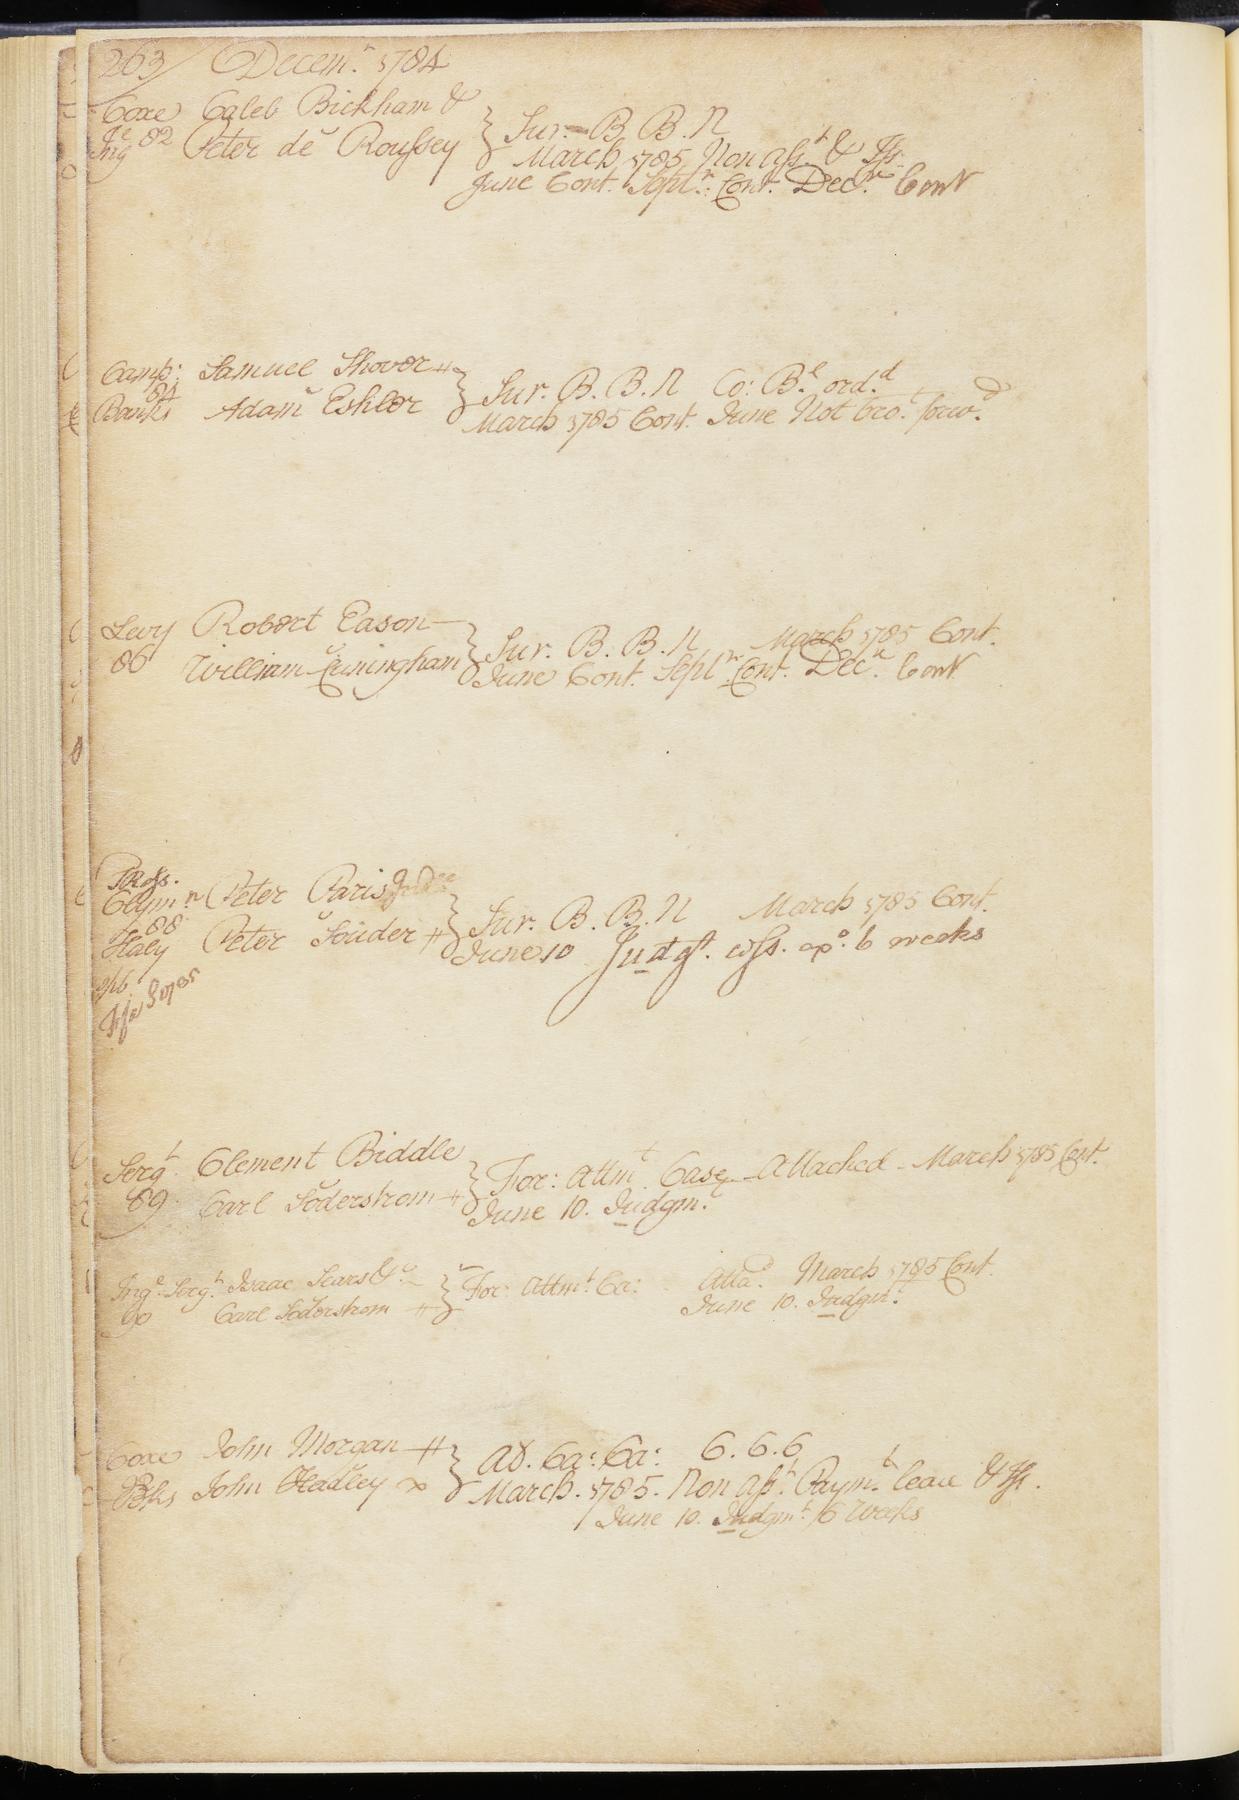 263/ Decem.r 1784
Coxe Caleb Bickham &
Ing.e 82 Peter de Roussey } Sur. B. B. N
March 1785 Non Ass.t & Iss.
June Cont. Sept.r Cont. Dec.r Cont
Camp: Samuel Shover #
84 Banks Adam Eshler } Sur. B. B. N Co: B.l ord.d
March 1785 Cont. June Not bro.t forw.d
Levy Robert Eason
86 William Cuningham } Sur. B. B. N March 1785 Cont.
June Cont. Sept.r Cont. Dec.r Cont
Ross.
Clym.r Peter Paris
88 Haly Peter Souder # } Sur. B. B. N March 1785 Cont.
June 10 Judgt. 6 weeks
Serg.t Clement Biddle
89 Carl Söderstrom # } For: Attm.t Case Attached - March 1785 Cont.
June 10. Judgm.t
Ing.e Serg.t Isaac Sears & C.o
90 Carl Soderstrom # } For: Attm.t Ca: Atta.d March 1785 Cont.
June 10. Judgm.t
Coxe John Morgan #
John Hadley } Ad. Ca: Ca: C.C.C
March. 1785. Non Ass.t Paym.t leave & Iss.
June 10. Judgm.t 6 Weeks